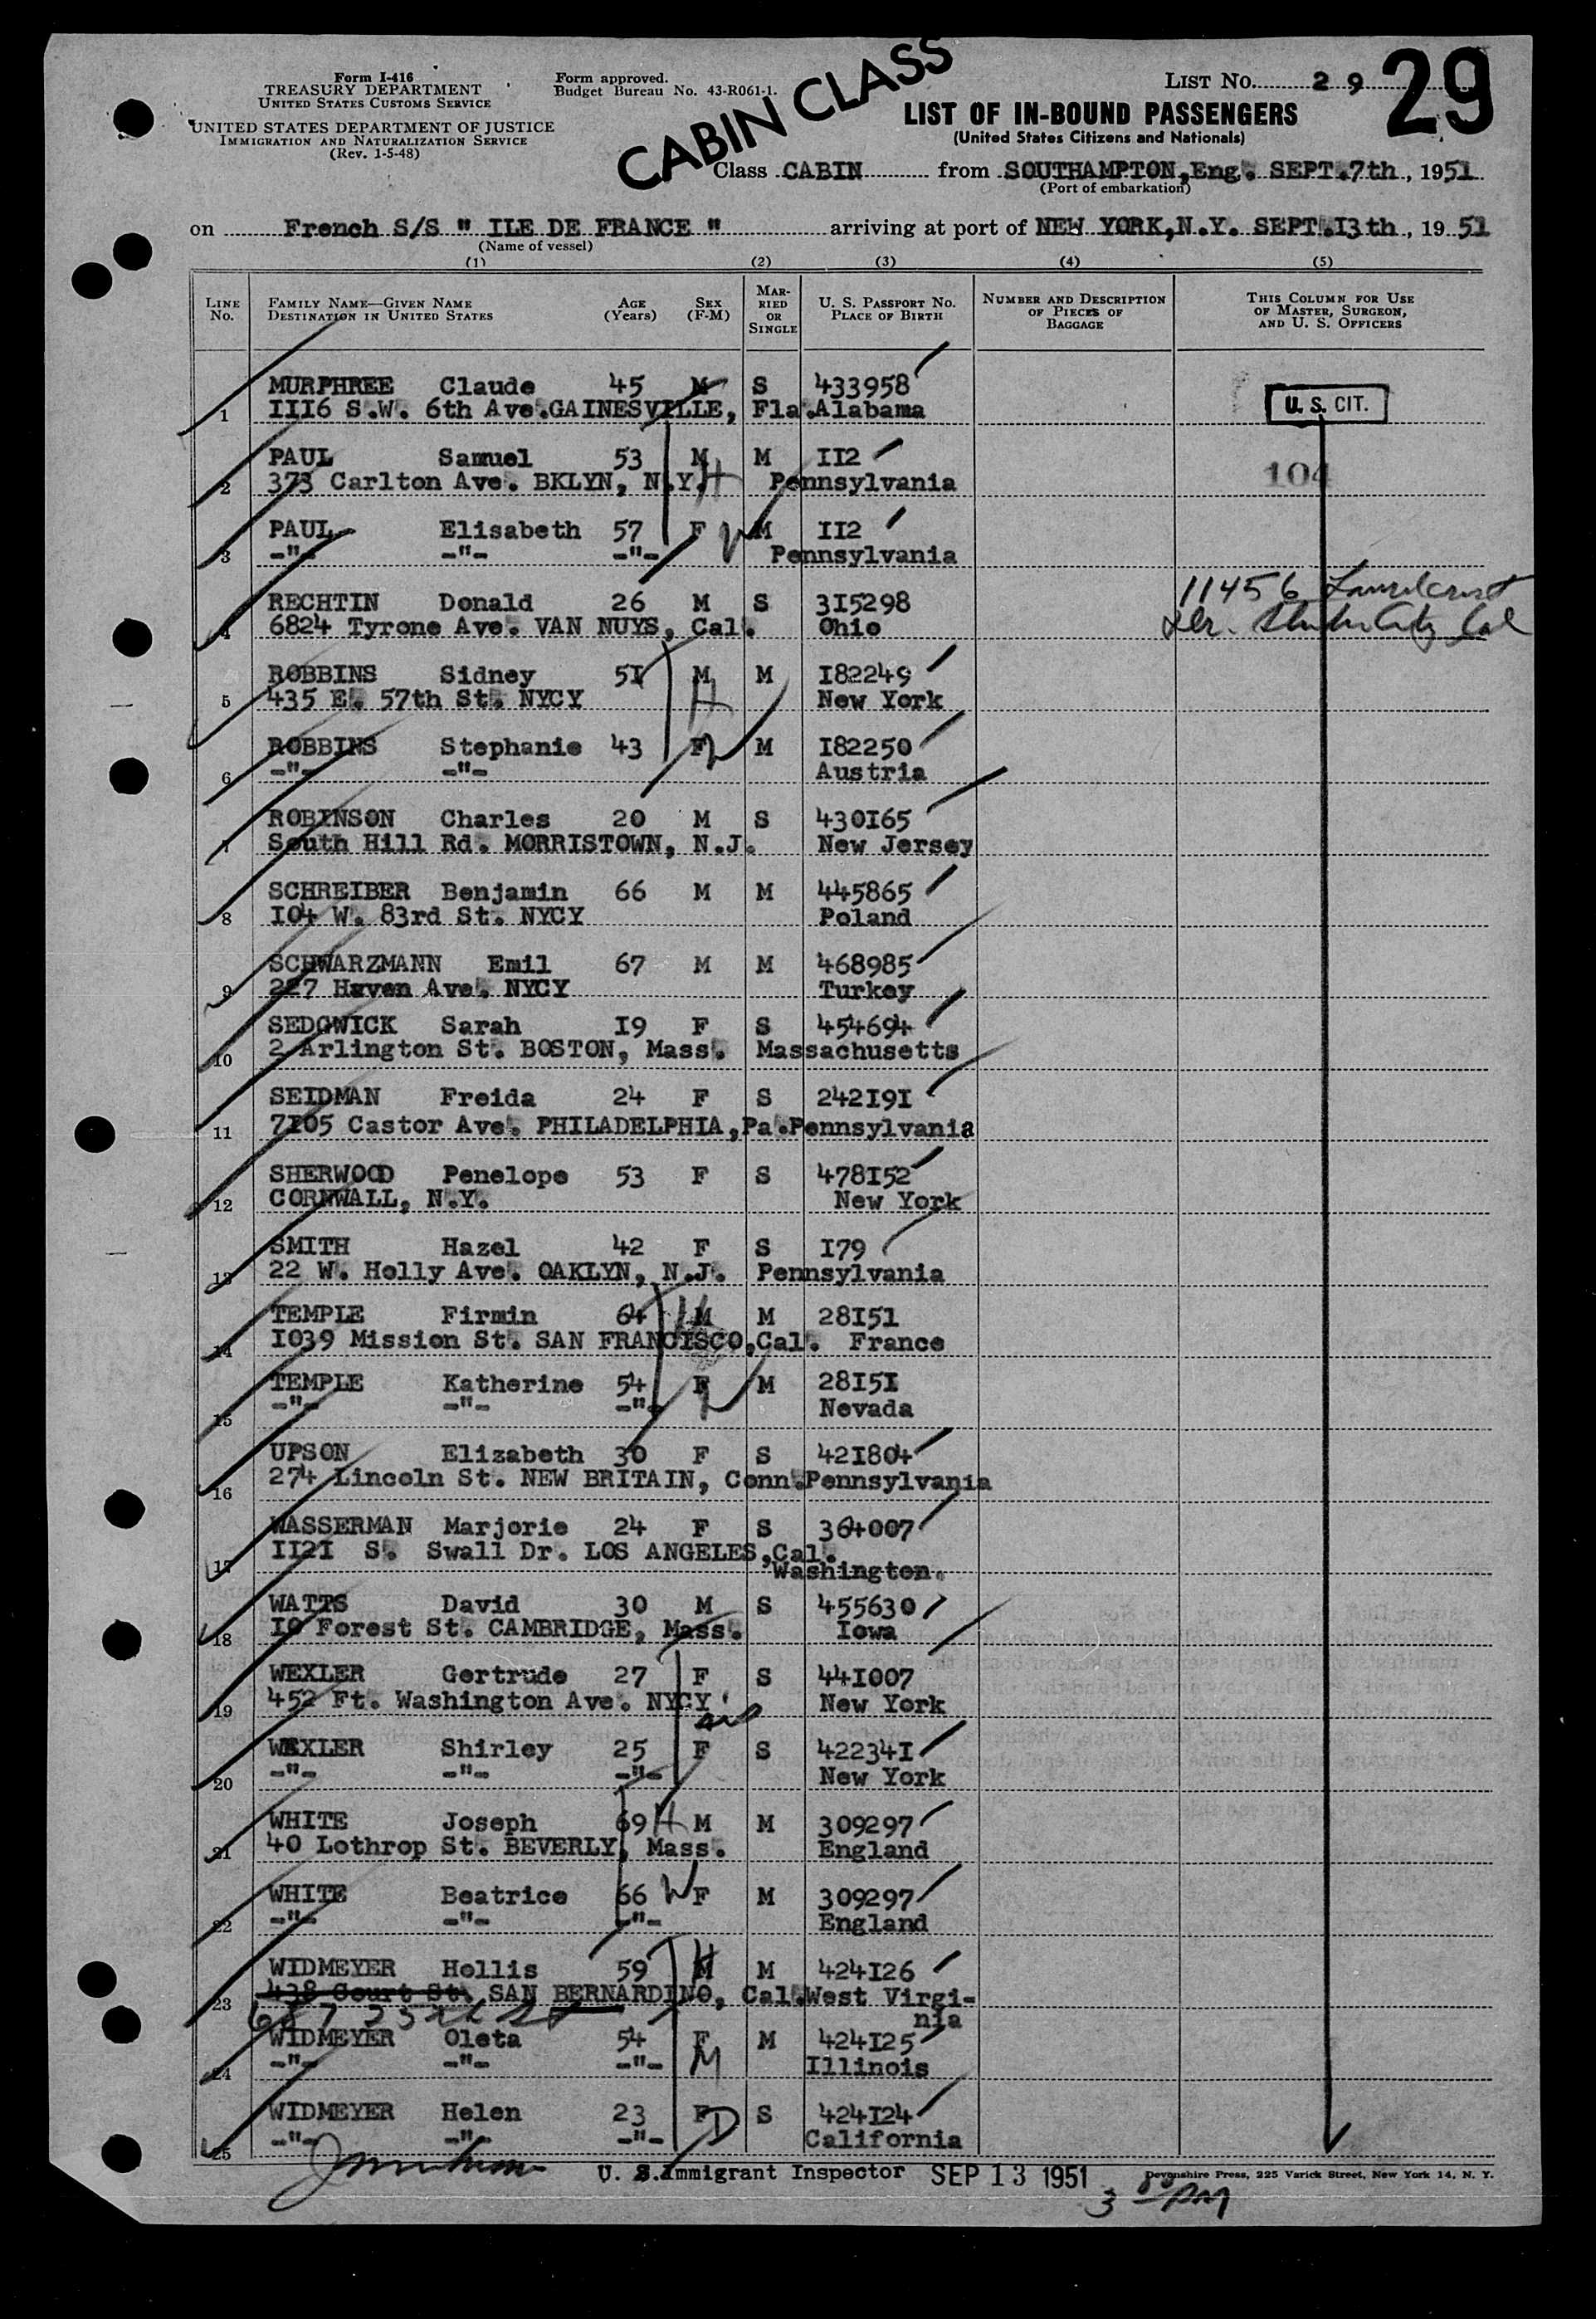 Form I-416
TREASURY DEPARTMENT
UNITED STATES CUSTOMS SERVICE
UNITED STATES DEPARTMENT OF JUSTICE
IMMIGRATION AND NATURALIZATION SERVICE
(Rev. 1-5-48)
Form approved.
Budget Bureau No. 43-R061-1.
CABIN CLASS
LIST NO. 29
29
LIST OF IN-BOUND PASSENGERS
(United States Citizens and Nationals)
Class CABIN from SOUTHAMPTON,Eng. SEPT.7th, 1951
(Port of embarkation)
on French S/S " ILE DE FRANCE " arriving at port of NEW YORK,N.Y. SEPT.I3th, 1951
(Name of vessel)
(1) (2) (3) (4) (5)
LINE No. FAMILY NAME—GIVEN NAME DESTINATION IN UNITED STATES AGE (Years) SEX (F-M) MARRIED OR SINGLE U. S. PASSPORT NO. PLACE OF BIRTH NUMBER AND DESCRIPTION OF PIECES OF BAGGAGE THIS COLUMN FOR USE OF MASTER, SURGEON, AND U. S. OFFICERS
MURPHREE Claude 45 M S 433958
1 III6 S.W. 6th Ave.GAINESVILLE, Fla.Alabama U. S. CIT.
PAUL Samuel 53 M M II2
2 373 Carlton Ave. BKLYN, N.Y. H Pennsylvania 104
PAUL Elisabeth 57 F W M II2
3 -"- -"- -"- Pennsylvania
RECHTIN Donald 26 M S 3I5298 11456 Laurelcrest
4 6824 Tyrone Ave. VAN NUYS, Cal. Ohio Dr. Studio City Cal
ROBBINS Sidney 5I M M I82249
5 435 E. 57th St. NYCY H New York
ROBBINS Stephanie 43 F W M I82250
6 -"- -"- Austria
ROBINSON Charles 20 M S 430I65
7 South Hill Rd. MORRISTOWN, N.J. New Jersey
SCHREIBER Benjamin 66 M M 445865
8 I04 W. 83rd St. NYCY Poland
SCHWARZMANN Emil 67 M M 468985
9 227 Haven Ave. NYCY Turkey
SEDGWICK Sarah I9 F S 454694
10 2 Arlington St. BOSTON, Mass. Massachusetts
SEIDMAN Freida 24 F S 242I9I
11 7I05 Castor Ave. PHILADELPHIA,Pa.Pennsylvania
SHERWOOD Penelope 53 F S 478I52
12 CORNWALL, N.Y. New York
SMITH Hazel 42 F S I79
13 22 W. Holly Ave. OAKLYN, N.J. Pennsylvania
TEMPLE Firmin 64 H M M 28I51
14 I039 Mission St. SAN FRANCISCO,Cal. France
TEMPLE Katherine 54 F M 28I5I
15 -"- -"- -"- W Nevada
UPSON Elizabeth 30 F S 42I804
16 274 Lincoln St. NEW BRITAIN, Conn.Pennsylvania
WASSERMAN Marjorie 24 F S 364007
17 II2I S. Swall Dr. LOS ANGELES,Cal.
Washington.
WATTS David 30 M S 455630
18 I0 Forest St. CAMBRIDGE, Mass. Iowa
WEXLER Gertrude 27 F S 44I007
19 452 Ft. Washington Ave. NYCY New York
WEXLER Shirley 25 F S 42234I
20 -"- -"- -"- New York
WHITE Joseph 69 H M M 309297
21 40 Lothrop St. BEVERLY, Mass. England
WHITE Beatrice 66 W F M 309297
22 -"- -"- -"- England
WIDMEYER Hollis 59 H M M 424I26
23 438 Court St. SAN BERNARDINO, Cal.West Virgi-
687 25th St nia
WIDMEYER Oleta 54 F M 424I25
24 -"- -"- -"- M Illinois
WIDMEYER Helen 23 F D S 424I24
25 -"- -"- -"- California
U. S.Immigrant Inspector SEP 13 1951 Devonshire Press, 225 Varick Street, New York 14, N. Y.
3 00 PM